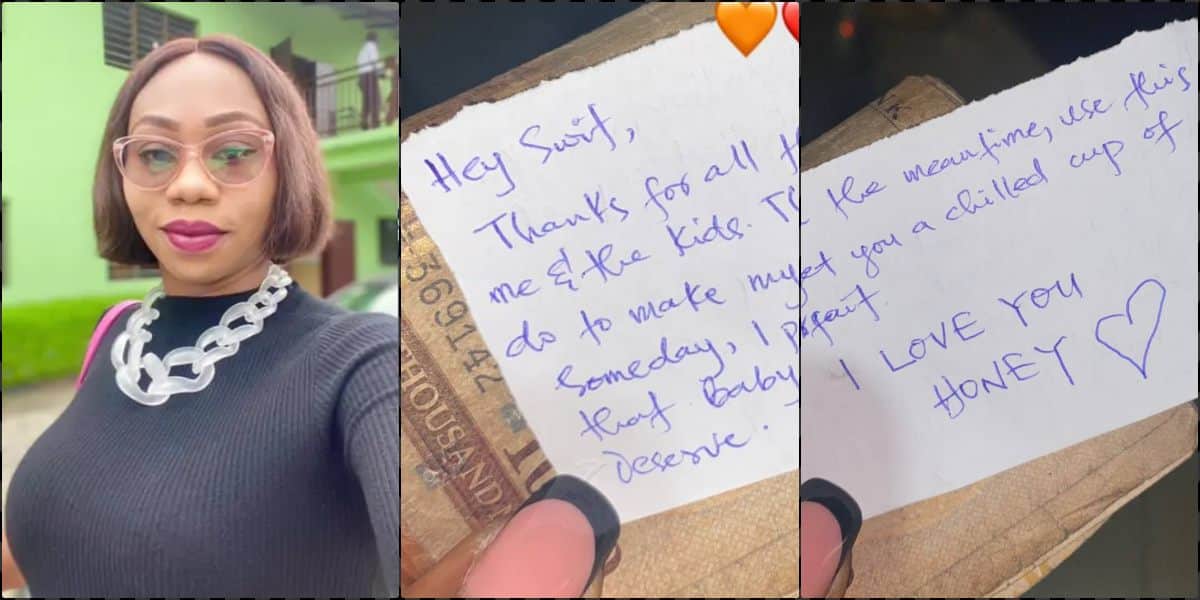 Hey Swif,
Thanks for all
me & the kids.
do to make my
Someday, I
that Baby
Deserve.
369142
THOUSAND
the meantime, use this
get you a chilled cup of
I LOVE YOU
HONEY